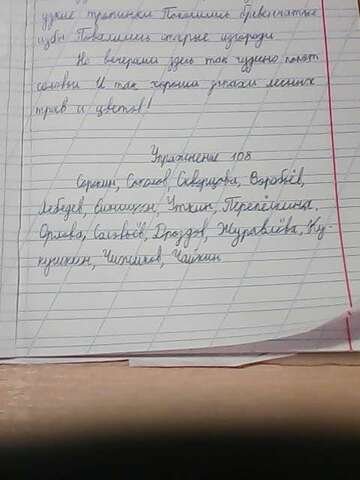 узкие тропинки Покосились бревенчатые
избы Повалились старые изгороди
Но вечерами здесь так чудно поют
соловьи И так хороши запахи лесных
трав и цветов!
Упражнение 108
Сорокин, Соколов, Скворцова, Воробьёв,
Лебедев, Синицын, Уткин, Перепёлкины,
Орлова, Соловьёв, Дроздов, Журавлёва, Ку-
кушкин, Чижиков, Чайкин